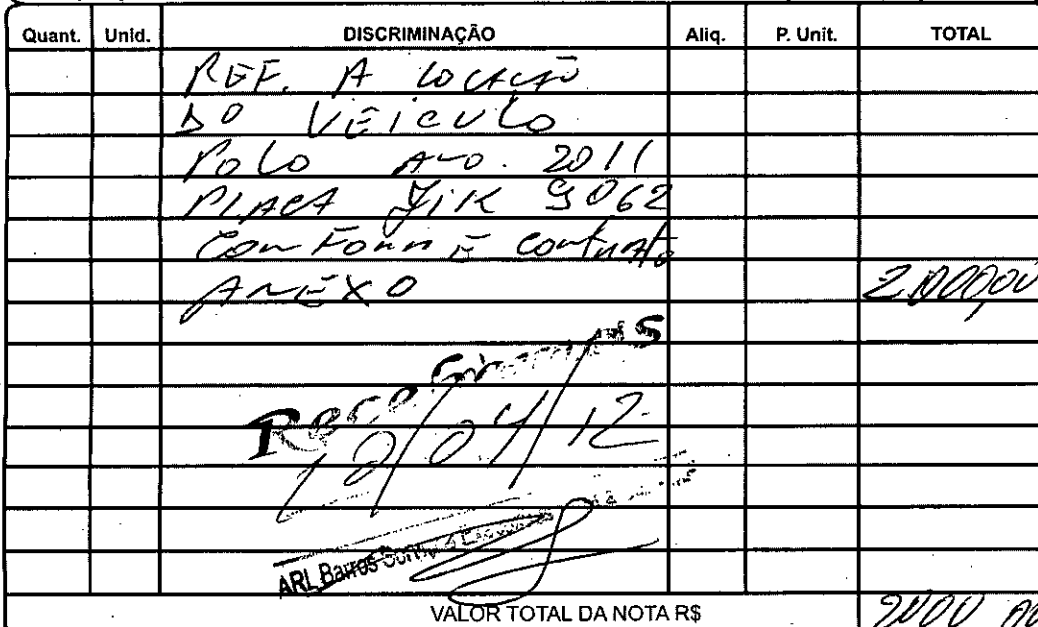 Quant. Unid. DISCRIMINAÇÃO Aliq. P. Unit. TOTAL
REF. A LOCAÇÃO
DO VEICULO
POLO ANO. 2011
PLACA JIK 9062
CONFORME contrato
ANEXO 2.000,00
Recebemos
10/04/12
ARL Barros
VALOR TOTAL DA NOTA R$ 2000,00